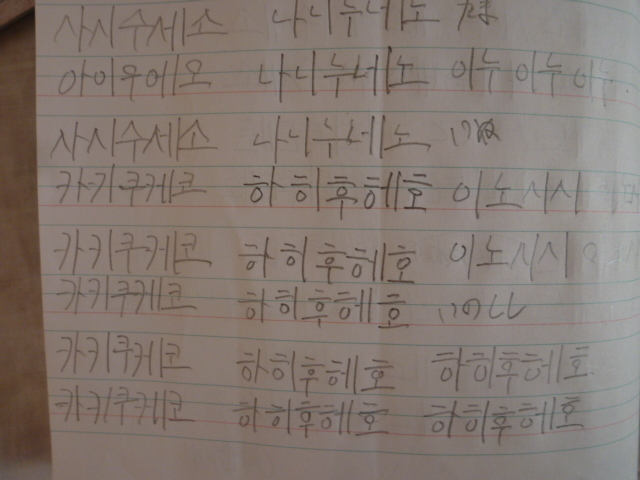 사시수세소 나니누네노
아이우에오 나니누네노 이누 이누 이누
사시수세소 나니누네노 いぬ
카키쿠케코 하히후헤호 이노시시
카키쿠케코 하히후헤호 이노시시
카키쿠케코 하히후헤호 いのしし
카키쿠케코 하히후헤호 하히후헤호
카키쿠케코 하히후헤호 하히후헤호